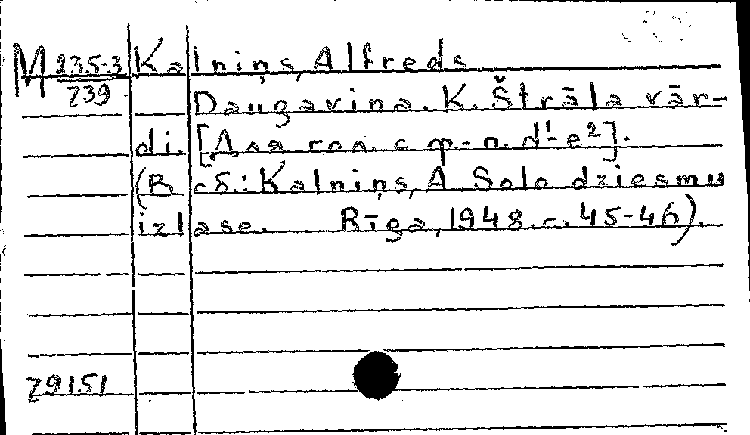 М 235-3/239 Kalniņš, Alfreds
Daugaviņa. K. Štrāla vār-
di. [Для гол. с ф-п. d¹-e²].
(В сб.: Kalniņš, A. Solo dziesmu
izlase. Rīga, 1948. с. 45-46).
29151